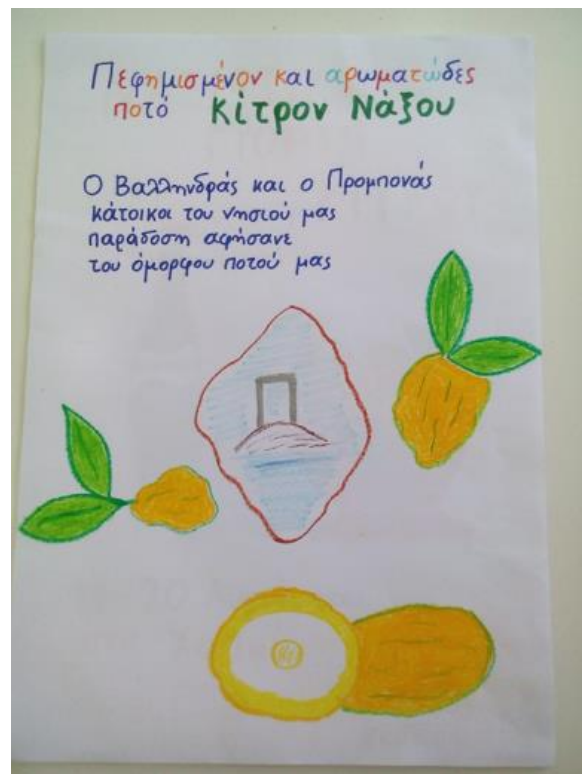 Πεφημισμένον και αρωματώδες
ποτό Κίτρον Νάξου
Ο Βαλληνδράς και ο Προμπονάς
κάτοικοι του νησιού μας
παράδοση αφήσανε
του όμορφου ποτού μας